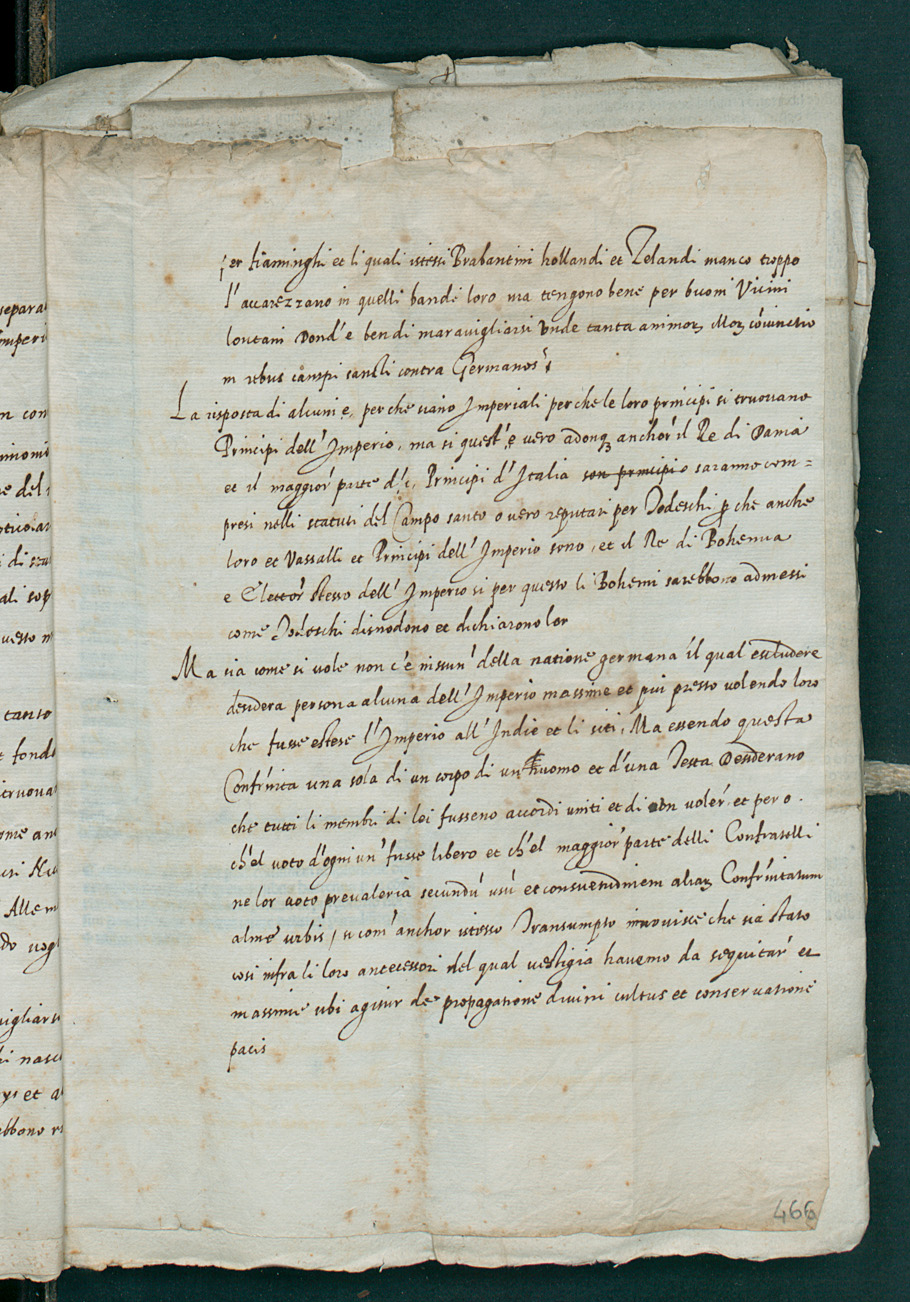 per fiaminghi et li quali istessi Brabantini hollandi et Zelandi manco troppo
l'accarezzano in quelli bande loro ma tengono bene per buoni Vicini
lontani Dond'e ben di maravigliarsi Unde tanta animoꝝ Moꝝ coiunctio
in rebus campi sancti contra Germanos
La risposta di alcuni e, perche siano Imperiali perche le loro principi si truovano
Principi dell'Imperio, ma si quest'e vero adonqꝫ anchor il Re di Dania
et il maggior parte d'i Principi d'Italia son principi o saranno com=
presi nelli statuti del Campo santo o vero reputati per Todeschi ꝑche anche
loro et Vassalli et Principi dell'Imperio sono, et il Re di Bohemia
e Elettor stesso dell'Imperio si per questo li Bohemi sarebbono admessi
come Todeschi disnodono et dichiarono lor
Ma sia come si vole non c'e nissun' della natione germana il qual escludere
desidera persona alcuna dell'Imperio massime et piu presso volendo loro
che fusse estese l'Imperio all'Indie et li siti, Ma essendo questa
Confr̄nita una sola di un corpo di un huomo et d'una Testa Desiderano
che tutti li membri di loi fusseno accordi uniti et di un voler, et pero
ch'el voto d'ogni un' fusse libero et ch'el maggior parte delli Confratelli
ne lor voto prevaleria secundū usū et consuetudinem aliaꝝ Confr̄nitatum
alme urbis, si com' anchor istesso Transumpto che sia stato
cosi infra li loro antecessori del qual vestigia havemo da sequitar et
massime ubi agitur de propagatione divini cultus et conservatione
pacis
466